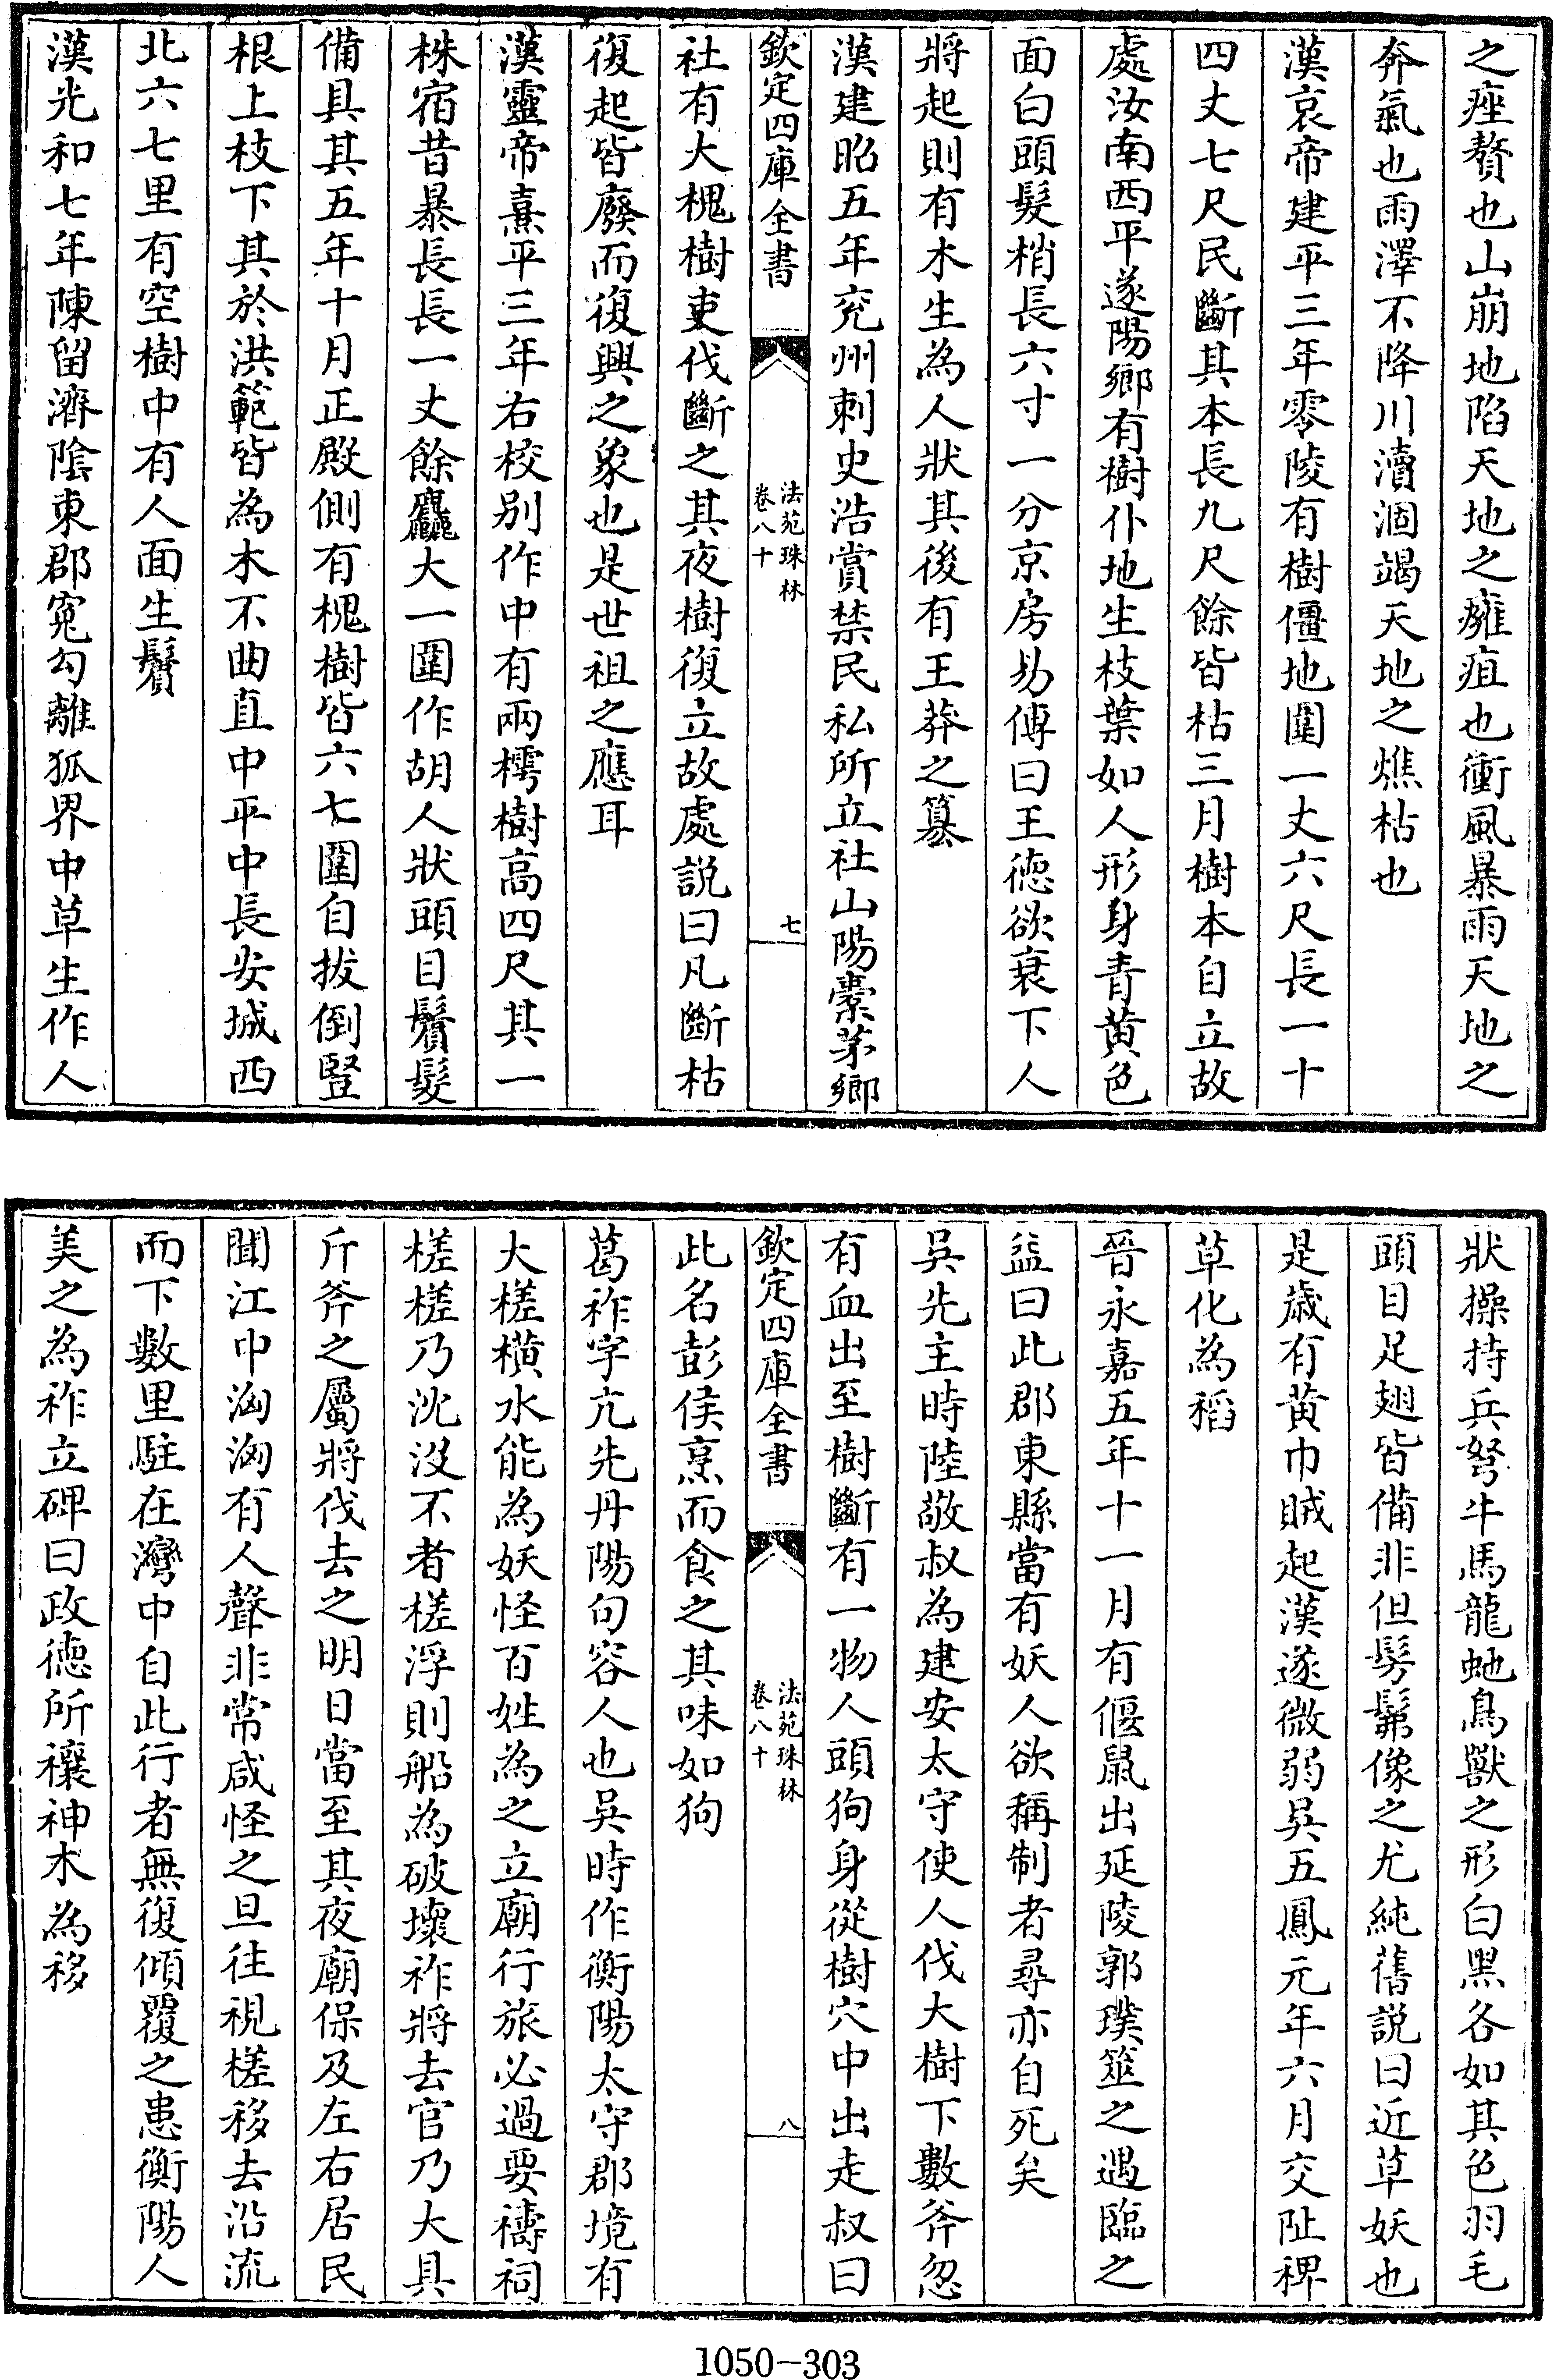 之痤贅也山崩地陷天地之癰疽也衝風暴雨天地之
奔氣也雨澤不降川瀆涸竭天地之燋枯也
漢哀帝建平三年零陵有樹僵地圍一丈六尺長一十
四丈七尺民斷其本長九尺餘皆枯三月樹本自立故
處汝南西平遂陽鄉有樹仆地生枝葉如人形身青黄色
面白頭髮梢長六寸一分京房易傅曰王徳欲衰下人
將起則有木生為人狀其後有王莽之篡
漢建昭五年兖州刺史浩賞禁民私所立社山陽橐茅鄉
欽定四庫全書
法苑珠林
卷八十
七
社有大槐樹吏伐斷之其夜樹復立故處説曰凡斷枯
復起皆廢而復興之象也是世祖之應耳
漢靈帝熹平三年右校别作中有兩樗樹高四尺其一
株宿昔暴長長一丈餘麤大一圍作胡人狀頭目鬢髮
備具其五年十月正殿側有槐樹皆六七圍自拔倒豎
根上枝下其於洪範皆為木不曲直中平中長安城西
北六七里有空樹中有人面生鬢
漢光和七年陳留濟陰東郡寃勾離狐界中草生作人
狀操持兵弩牛馬龍虵鳥獸之形白黑各如其色羽毛
頭目足翅皆備非但髣髴像之尤純舊説曰近草妖也
是歳有黄巾賊起漢遂微弱吳五鳳元年六月交阯稗
草化為稻
晉永嘉五年十一月有偃鼠出延陵郭璞筮之遇臨之
益曰此郡東縣當有妖人欲稱制者尋亦自死矣
吳先主時陸敬叔為建安太守使人伐大樹下數斧忽
有血出至樹斷有一物人頭狗身從樹穴中出走叔曰
欽定四庫全書
法苑珠林
卷八十
八
此名彭侯烹而食之其味如狗
葛祚字亢先丹陽句容人也吳時作衡陽太守郡境有
大槎横水能為妖怪百姓為之立廟行旅必過要禱祠
槎槎乃沈沒不者槎浮則船為破壞祚將去官乃大具
斤斧之屬將伐去之明日當至其夜廟保及左右居民
聞江中洶洶有人聲非常咸怪之旦往視槎移去沿流
而下數里駐在灣中自此行者無復傾覆之患衡陽人
美之為祚立碑曰政徳所禳神木為移
1050-303